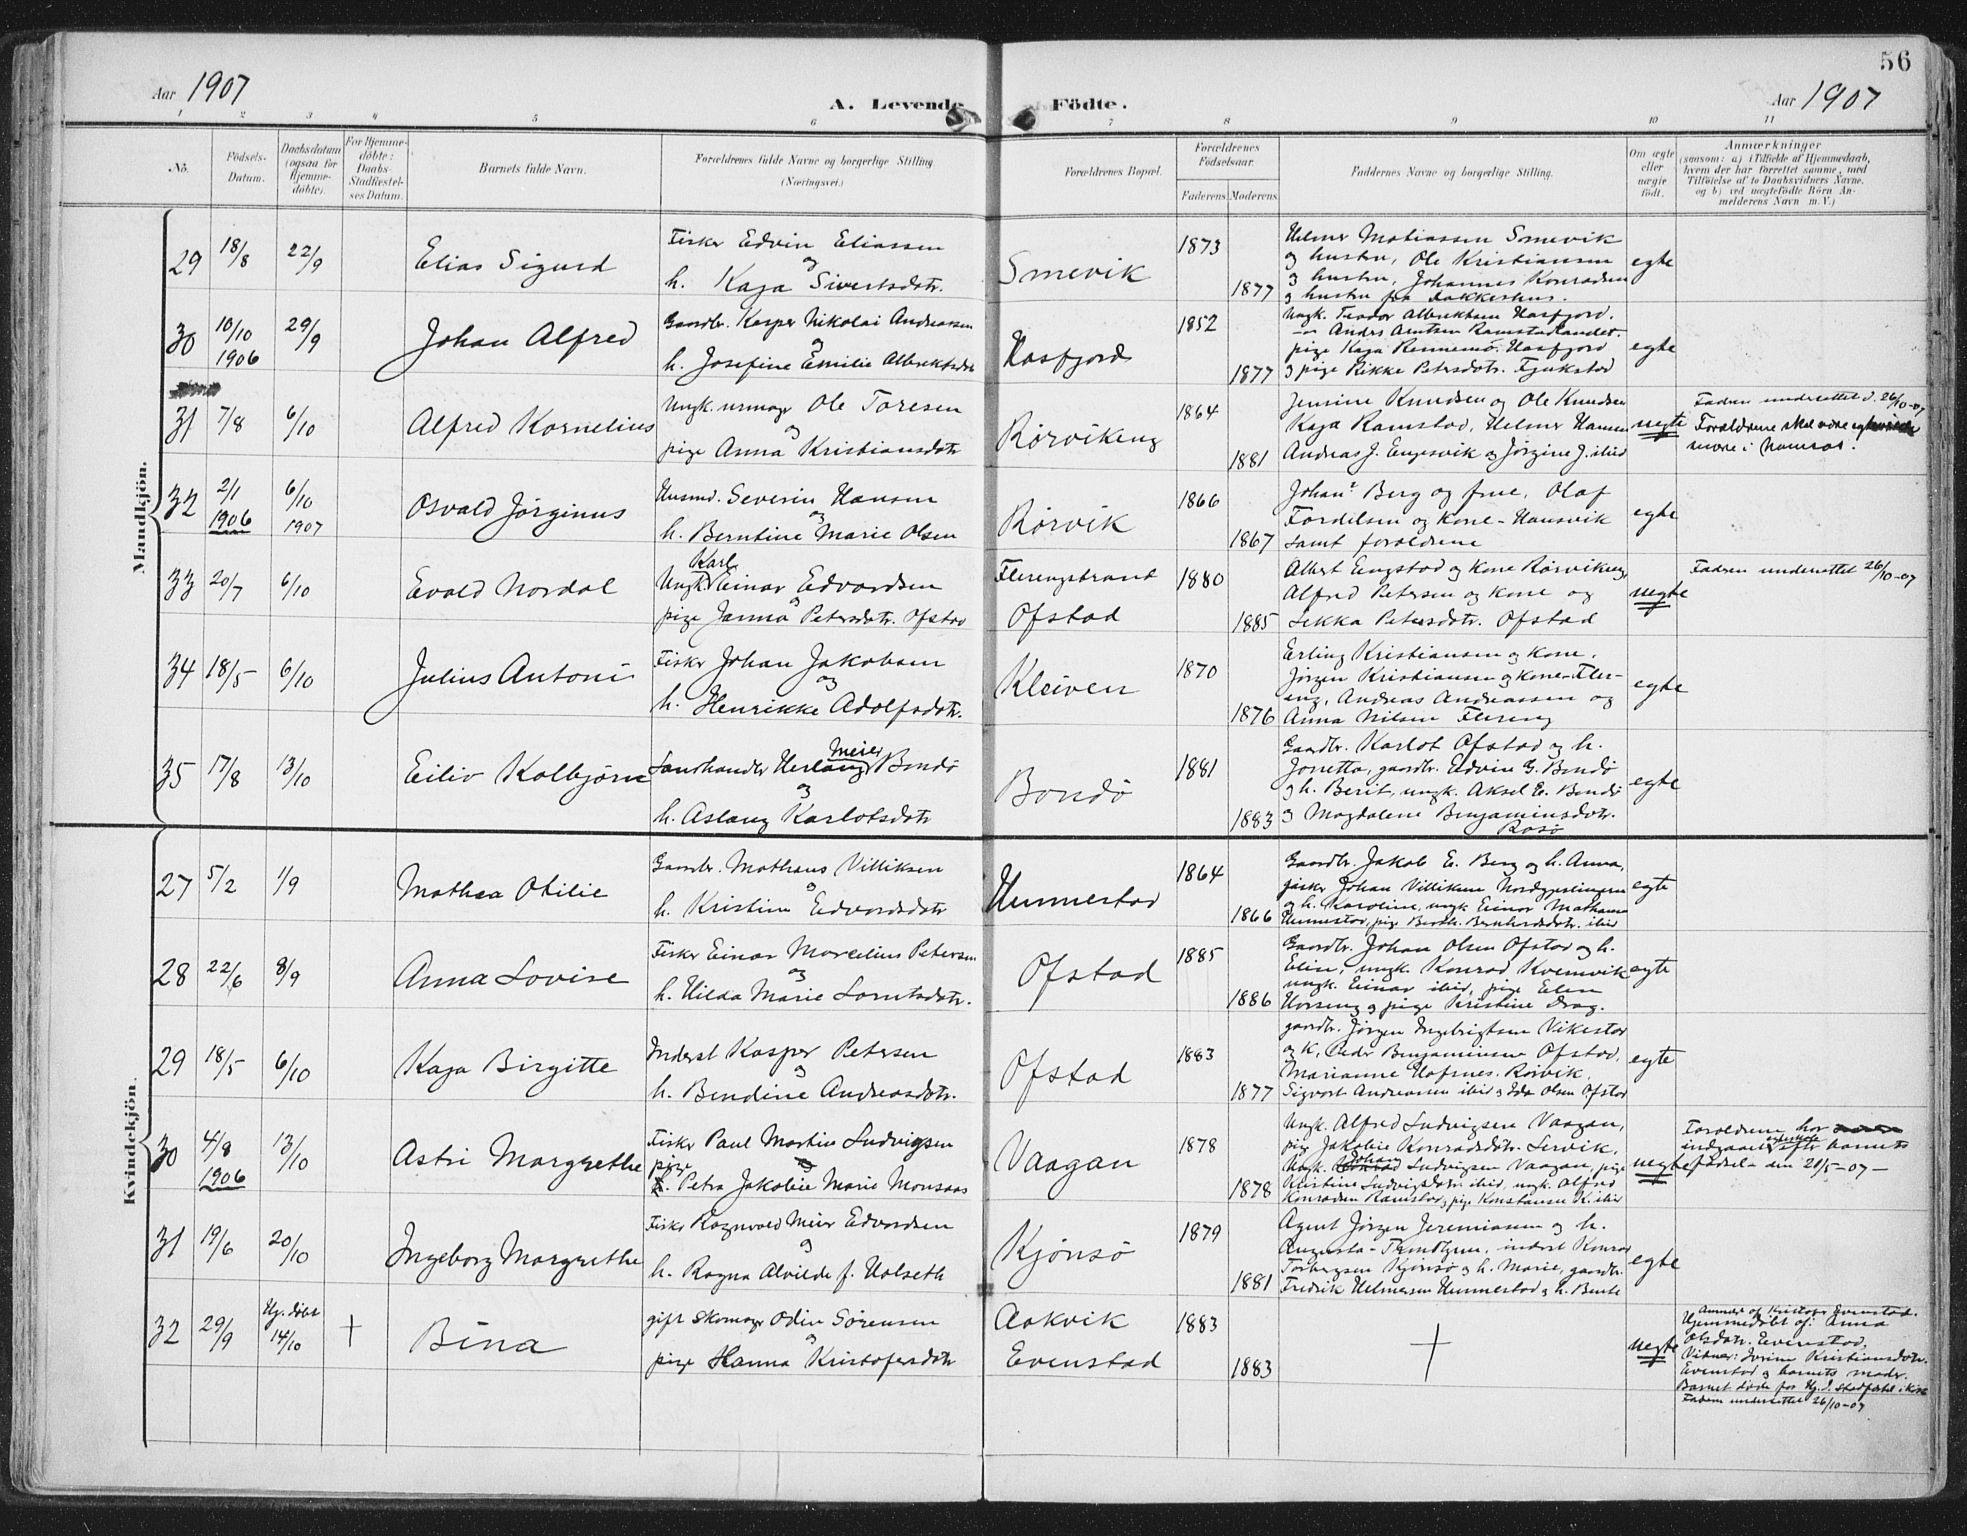 56
Aar 1907
A. Levende Födte.
Aar 1907
1 2 3 4 5 6 7 8 9 10 11
No.
Födsels-Datum.
Daabsdatum (ogsaa for Hjemme-döbte).
For Hjemme-döbte: Daabs-Stadfæstel-ses Datum.
Barnets fulde Navn.
Forældrenes fulde Navne og borgerlige Stilling (Næringsvei.)
Forældrenes Bopæl.
Forældrenes Födselsaar.
Faderens. Moderens.
Faddernes Navne og borgerlige Stilling.
Om ægte eller uægte födt.
Anmærkninger
(saasom: a) i Tilfælde af Hjemmedaab,
hvem der har forrettet samme, med
Tilföielse af to Daabsvidners Navne,
og b) ved uægtefödte Börn An-
melderens Navn m. V.)
Mandkjön.
29 18/8 22/9 Elias Sigurd
Fisker Edvin Eliassen
og
h. Kaja Sivertsdtr.
Smevik
1873
1877
Helmer Matiassen Smevik
og hustru, Ole Kristiansen
og hustru, Johannes Konradsen
og hustru fra Bakkeshus.
egte
30 10/10 1906 29/9 Johan Alfred
Gaardbr. Kasper Nikolai Andreassen
og
h. Josefine Emilie Albrektsdtr
Hasfjord
1852
1877
Ungk. Teodor Albriktsen Hasfjord.
— Andrs Arntsen Ramstadlandet.
pige Kaja Rennemo. Hasfjord
og pige Rikke Petersdotr. Fjukstad
egte
31 7/8 6/10 Alfred Kornelius
Ungk. urmagr Ole Toresen
og
pige Anna Kristiansdtr
Rörvikeng
1864
1881
Jensine Knudsen og Ole Knudsen
Kaja Ramstad, Helmer Hansen
Andreas J. Engesvik og Jørgine J. ibid
uegte
Fadren underrettet d. 26/10-07
Foraldrene skal være
i Namsos.
32 2/1 1906 6/10 1907 Osvald Jørginus
Husmd. Severin Hansen
og
h. Berntine Marie Olsen
Rörvik
1866
1867
Johan Berg og frue, Olaf
Fordelsen og kone - Hansvik
samt foraldrene
egte
33 20/7 6/10 Evald Nordal
Karl
Ungk. Einar Edvardsen
og
pige Janna Petersdotr. Ofstad
Flerengstrand
Ofstad
1880
1885
Albert Engstad og kone Rørvikeng
Alfred Petersen og kone og
Petersdotr. Ofstad
uegte
Fadren underrettet 26/10-07
34 18/5 6/10 Julius Antoni
Fisker Johan Jakobsen
og
h. Henrikke Adolfsdotr.
Kleiven
1870
1876
Erling Kristiansen og kone.
Jörgen Kristiansen og kone - Fler-
eng, Andreas Andreassen og
Anna Nilsen Flereng
egte
35 17/8 13/10 Eiliv Kolbjørn
Meier
Landhandler Herlaug Bondø
og
h. Aslaug Karlotsdotr
Bondö
1881
1883
Gaardbr. Karlot Ofstad og h.
Jonetta, gaardbr. Edvin G. Bondø
og h. Berit, ungk. Aksel E. Bondø
og Magdalene Benjaminsdotr.
Rosø
egte
Kvindekjön.
27 5/2 1/9 Mathea Otilie
Gaardbr. Mathæus Villiksen
og
h. Kristine Edvardsdotr
Hunnestad
1864
1866
Gaardbr. Jakob E. Berg og h. Anna,
fisker Johan Villiksen
og h. Karoline, ungk Einar
Hunnestad, pige Bernhardsdotr. ibid
egte
28 22/6 8/9 Anna Lovise
Fisker Einar Marcelius Petersen
og
h. Hilda Marie Lorntsdotr.
Ofstad
1885
1886
Gaardbr. Johan Olsen Ofstad og h.
Eline, ungk. Konrad Kvemvik
ungk. Einar ibid, pige Elen
Horseng og pige Kristine Drag.
egte
29 18/5 6/10 Kaja Birgitte
Inderst Kasper Petersen
og
h. Bendine Andreasdotr.
Ofstad
1883
1877
gaardbr. Jörgen Ingebrigtsen Vikestad
og k. Peder Benjaminsen Ofstad,
Marianne Hofmes. Rörvik.
Sigvart Andreassen ibid og Ida Olsen Ofstad
egte
30 4/8 1906 13/10 Astri Margrethe
Fisker Paul Martin Ludvigsen
og
pige Petra Jakobie Marie Monsaas
Vaagan
1878
1878
Ungk. Alfred Ludvigsen Vaagan,
pig Jakobie Konradsdtr. Servik.
Ungk. Johan Ludvigsen Vaagan, pige
Kristine Ludvigsdotr. ibid, ungk. Alfred
Konradsen Ramstad, pige Konstanse K. ibid
uegte
Foraldrene har
indgaaet egteskab efter barnets
fødsel - den 20/5-07 -
31 19/6 20/10 Ingeborg Margrethe
Fisker Ragnvald Meier Edvardsen
og
h. Ragna Alvilde f. Halseth
Kjönsö
1879
1881
Agent Jörgen Jeremiassen og h.
Augusta - Trondhjem, inderst Konrad
Torbergsen Kjönsø og h. Marie, gaardbr.
Fredrik Helmersen Hunnestad og h. Bente
egte
32 29/9 Hj. døbt 14/10 † Bina
gift skomagr Odin Sörensen
og
pige Hanna Kristofersdotr
Aakvik
Evenstad
1883
1883
†
uegte
Anmeldt af Kristofer Evenstad.
Hjemmedøbt af: Anna
Olsdotr. Evenstad,
Vitner: Jorine Kristiansdotr.
Evenstad og barnets moder.
Barnet døde før Hj.d. stadfæstet i kirk
Fadren underrettet 26/10-07